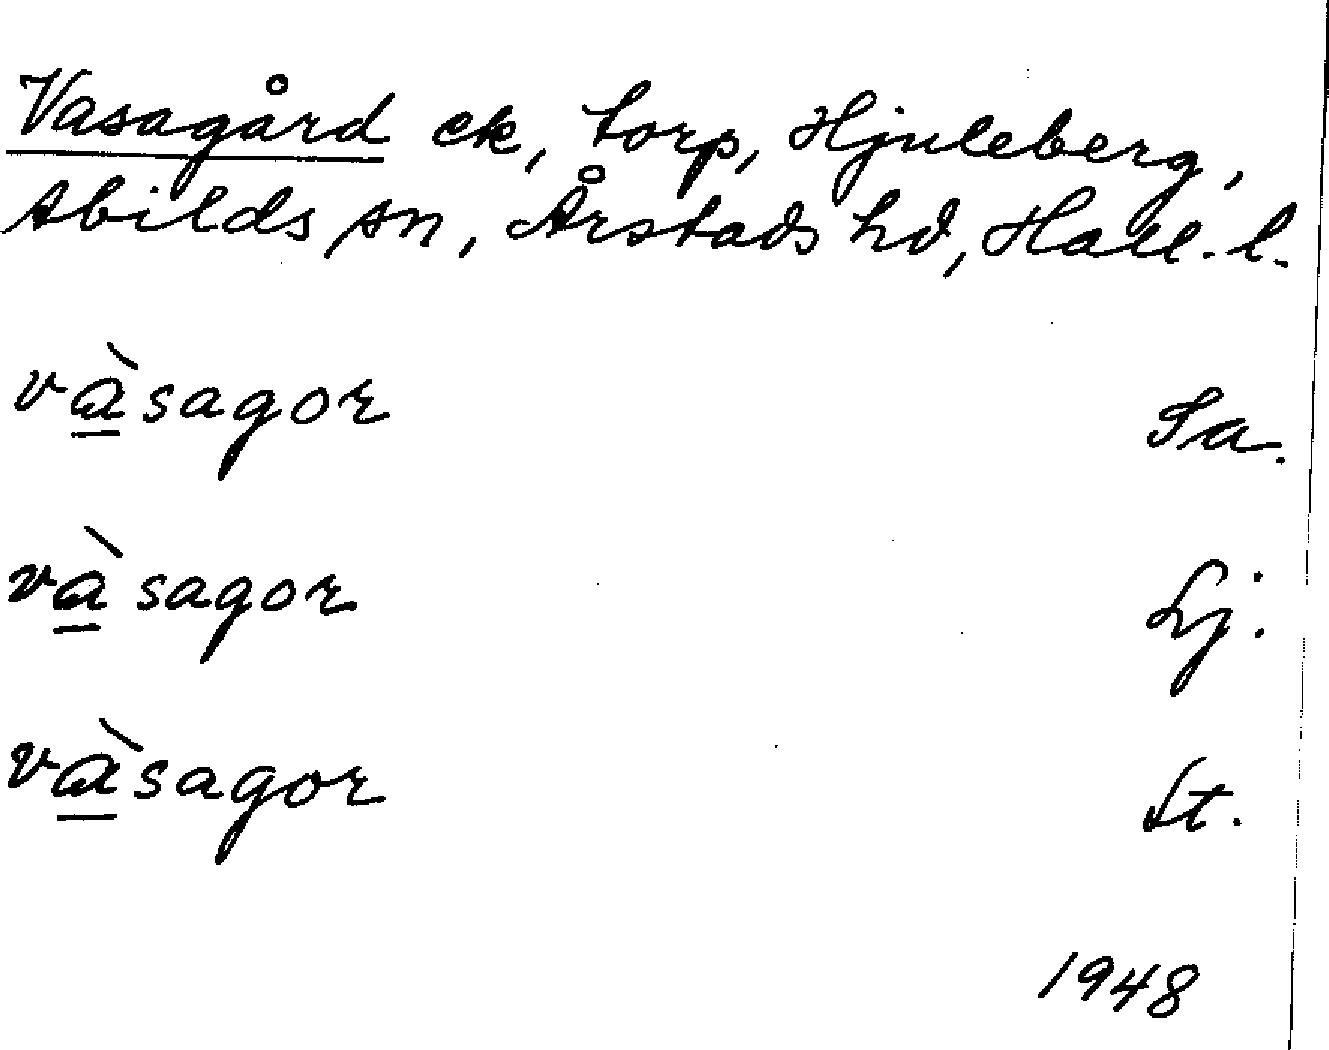 Vasagård ek, torp, Hjuleberg,
Abilds sn, Årstads hd, Hall. l.
và̱sagor Sa.
và̱sagor Lj.
và̱sagor St.
1948